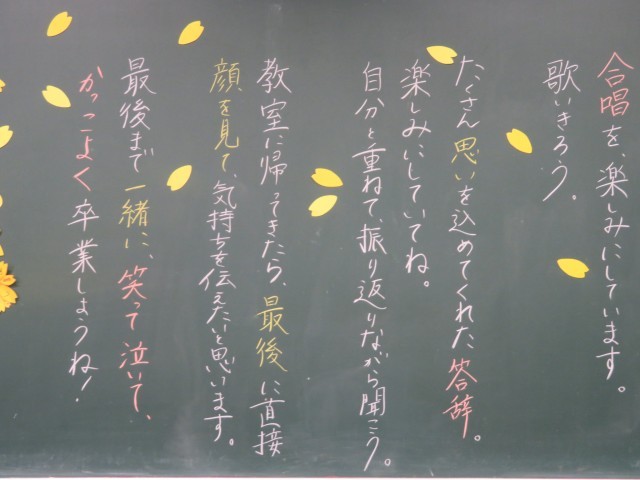 合唱を、楽しみにしています。
歌いきろう。
たくさん思いを込めてくれた答辞。
楽しみにしていてね。
自分と重ねて、振り返りながら聞こう。
教室に帰ってきたら、最後に直接
顔を見て、気持ちを伝えたいと思います。
最後まで一緒に、笑って泣いて、
かっこよく卒業しようね!